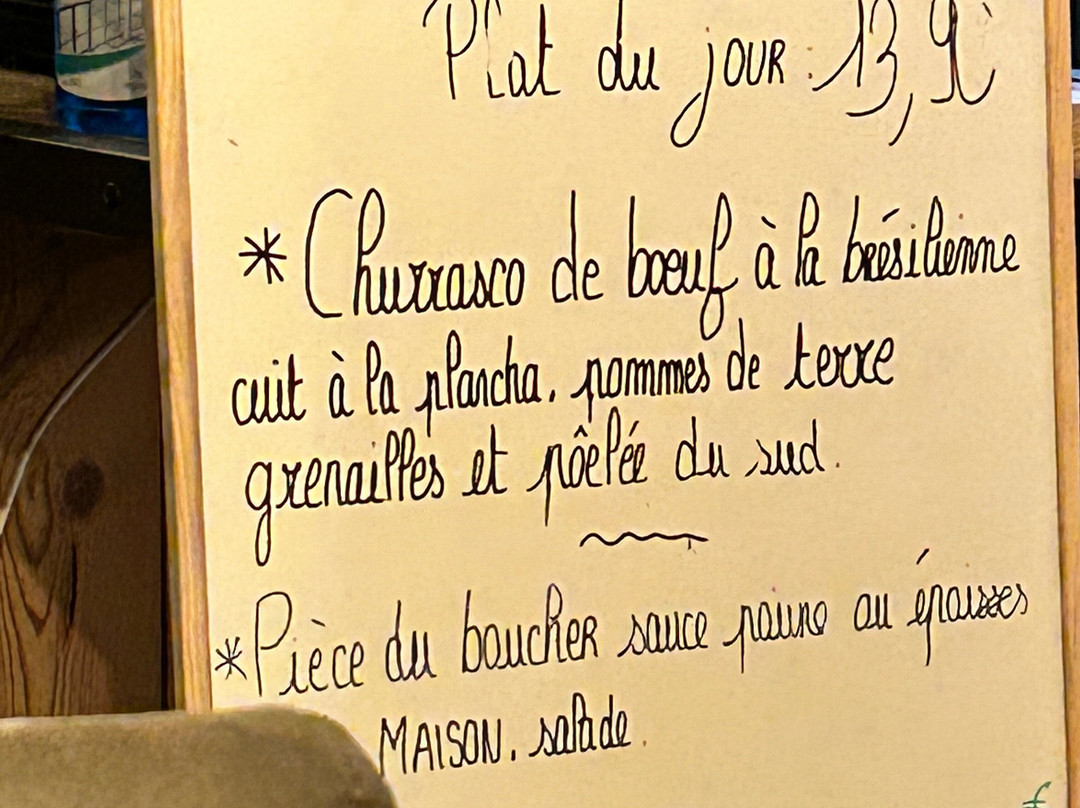 Plat du jour : 13,9
* Churrasco de boeuf à la brésilienne
cuit à la plancha, pommes de terre
grenailles et pôelée du sud.
* Pièce du boucher sauce ou
MAISON, salade.